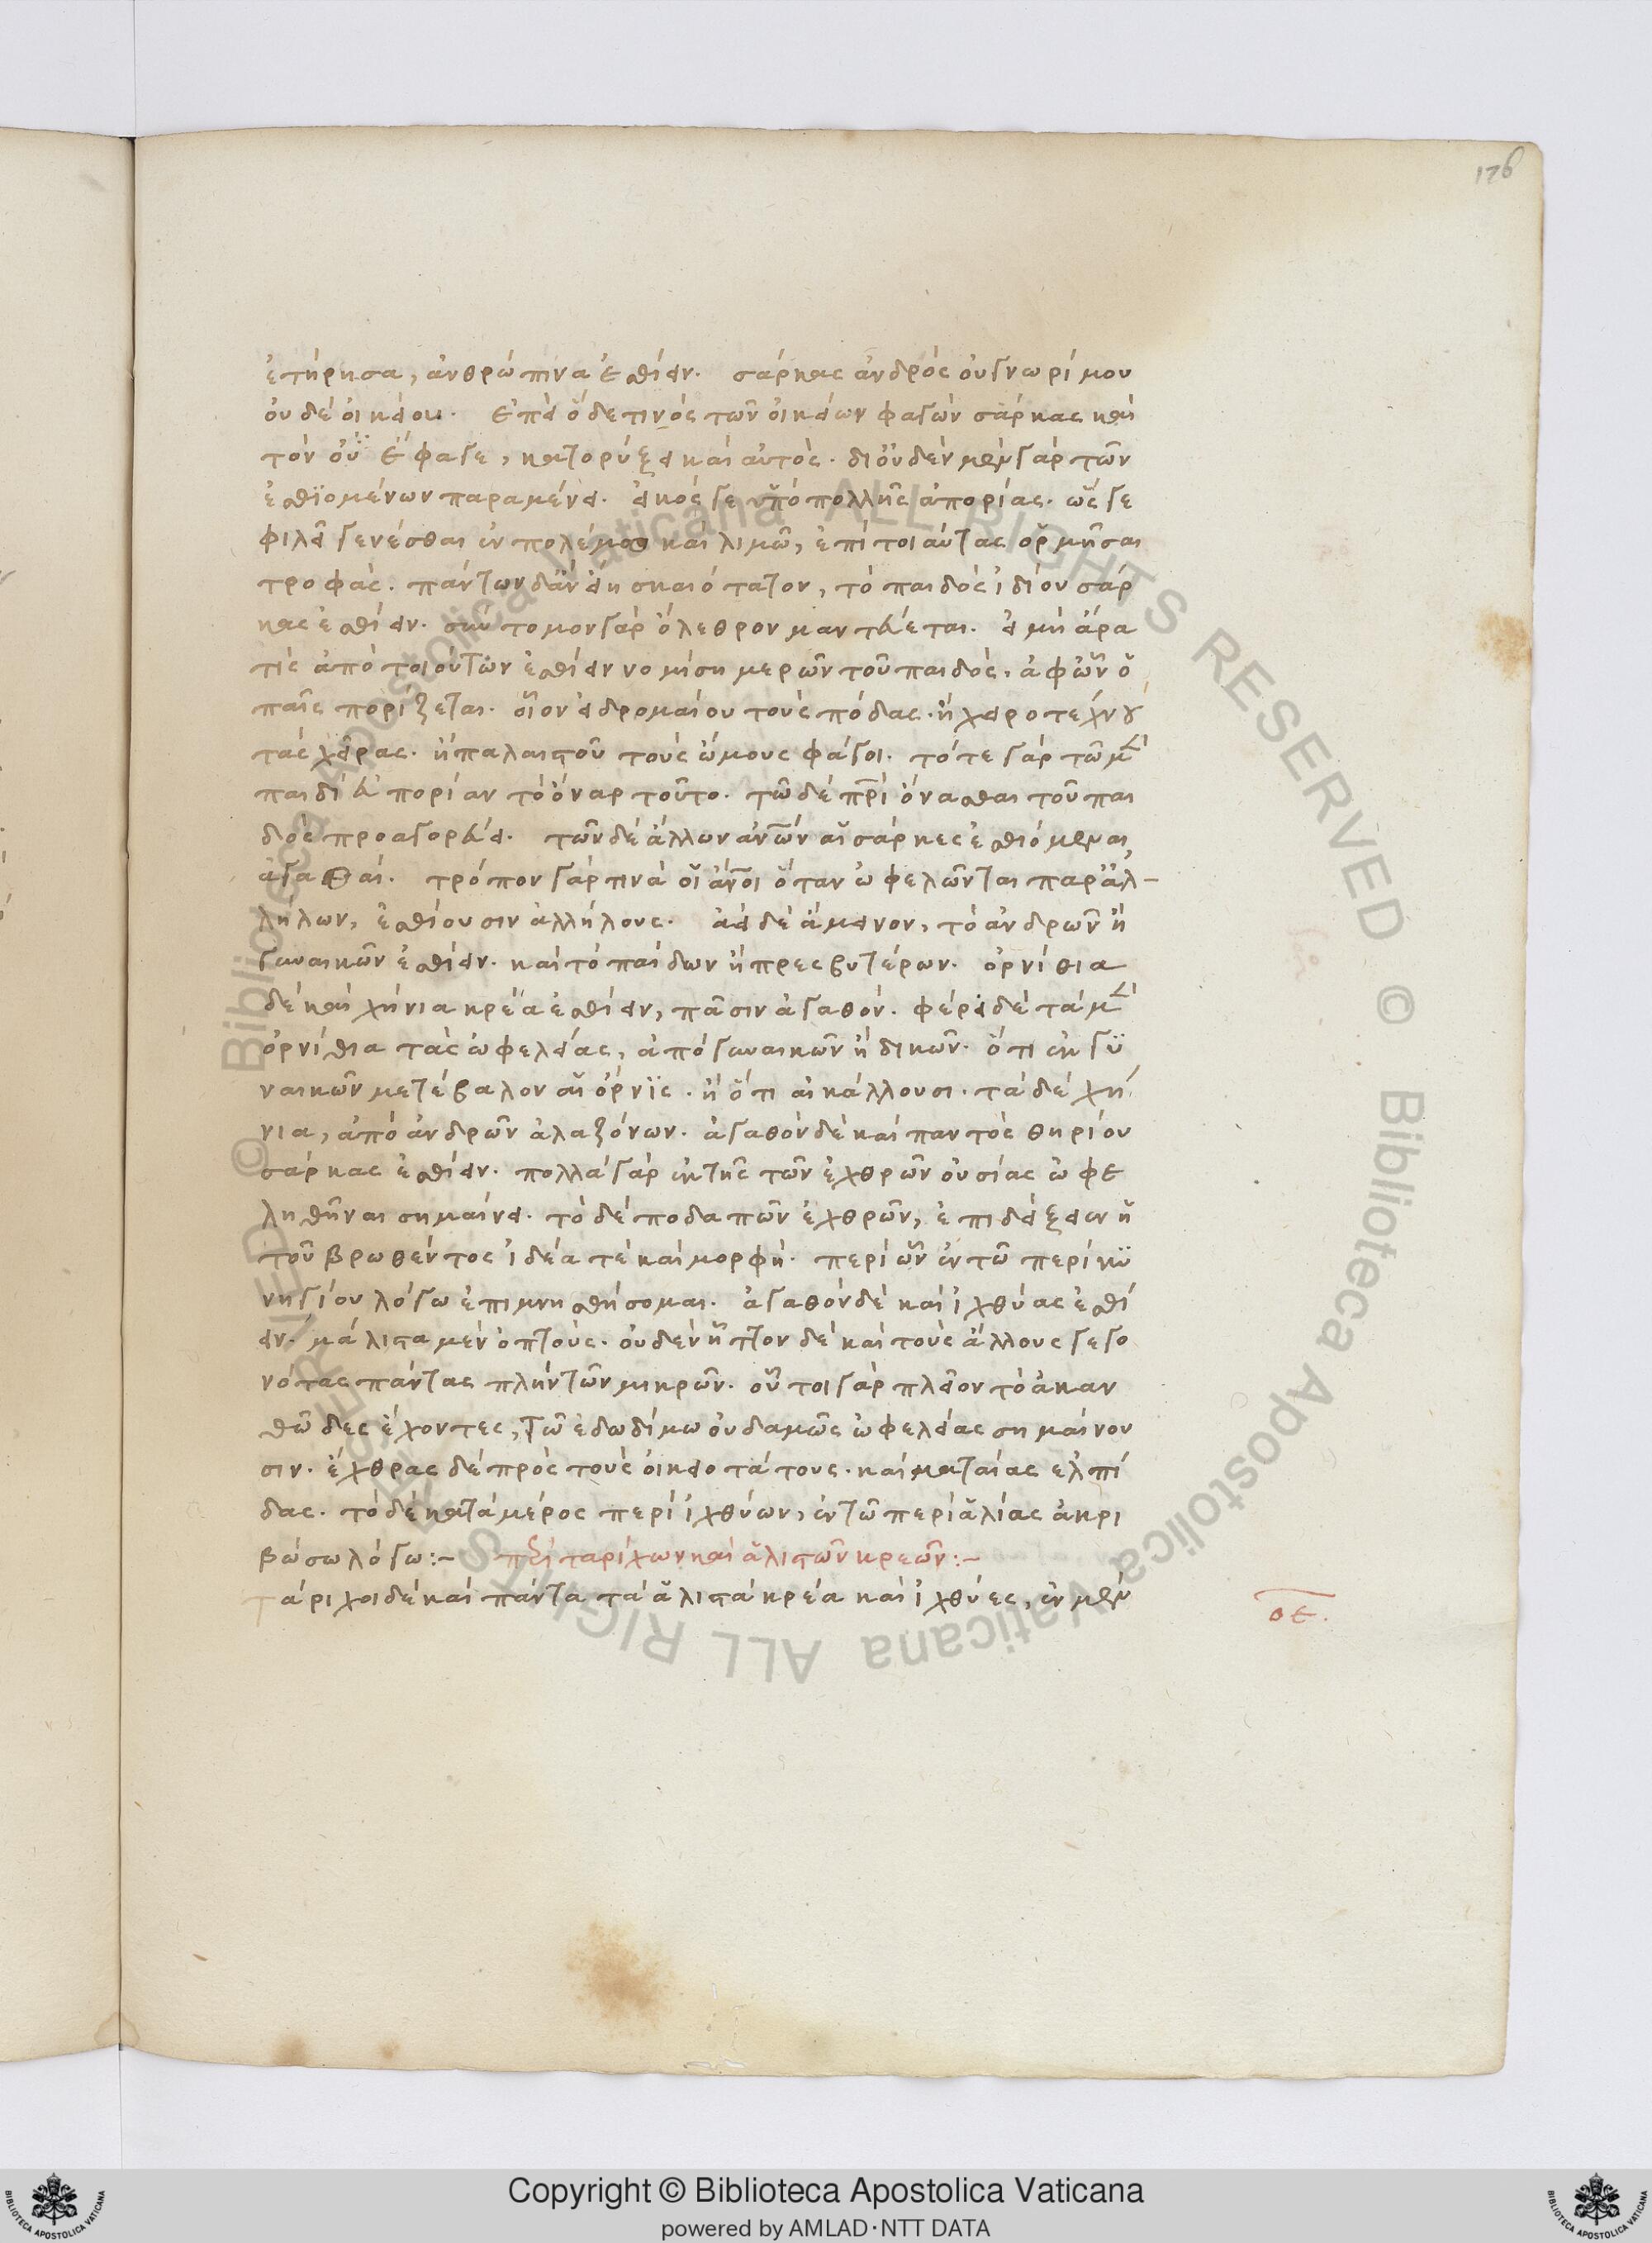 176
ἐτήρησα, ἀνθρώπινα ἐσθίειν. σάρκας ἀνδρὸς οὐ γνωρίμου
οὐδὲ οἰκείου. ἐπεὶ ὅδε τινὸς τῶν οἰκείων φαγὼν σάρκας καὶ
τὸν οὗ ἔφαγε, κατορύξει καὶ αὐτὸς. δι οὐδὲν μὲν γὰρ τῶν
ἐσθϊομένων παραμένει. εἰκός γε ὑπὸ πολλῆς ἀπορίας. ὥς γε
φιλεῖ γενέσθαι ἐν πολέμω καὶ λιμῶ, ἐπὶ τοιαύτας ὁρμῆσαι
τροφάς. πάντων δ' ἂν εἴη σκαιότατον, τὸ παιδὸς ἰδίου σάρ
κας ἐσθίειν. σύντομον γὰρ ὄλεθρον μαντεύεται. εἰ μὴ ἄρα
τὶς ἀπὸ τοιούτων ἐσθίειν νομίση μερῶν τοῦ παιδὸς, ἀφ ὧν ὁ
παῖς πορίζεται. οἷον εἰ δρομαίου τοὺς πόδας. ἢ χειροτέχνου
τὰς χεῖρας. ἢ παλαιστοῦ τοὺς ὤμους φάγοι. τότε γὰρ τῶ μὲν
παιδὶ εὐπορίαν τὸ ὄναρ τοῦτο. τῶ δὲ πρὶ ὄνασθαι τοῦ παι
δὸς προαγορεύει. τῶν δὲ ἄλλων ἀνῶν αἱ σάρκες ἐσθιόμεναι,
ἀγαθαί. τρόπον γάρ τινα οἱ ἄνοι ὅταν ὠφελῶνται παρ' ἀλ-
λήλων, ἐσθίουσιν ἀλλήλους. ἀεὶ δὲ ἄμεινον, τὸ ἀνδρῶν ἢ
γυναικῶν ἐσθίειν. καὶ τὸ παίδων ἢ πρεσβυτέρων. ὀρνίθια
δὲ καὶ χήνια κρέα ἐσθίειν, πᾶσιν ἀγαθόν. φέρει δὲ τὰ μὲν
ὀρνίθια τὰς ὠφελείας, ἀπὸ γυναικῶν ἢ δικῶν. ὅτι ἐκ γυ
ναικῶν μετέβαλον αἱ ὄρνϊς. ἢ ὅτι αἰκάλλουσι. τὰ δὲ χή
νια, ἀπὸ ἀνδρῶν ἀλαζόνων. ἀγαθὸν δὲ καὶ παντὸς θηρίου
σάρκας ἐσθίειν. πολλὰ γὰρ ἐκ τῆς τῶν ἐχθρῶν οὐσίας ὠφε
ληθῆναι σημαίνει. τὸ δὲ ποδαπῶν ἐχθρῶν, ἐπιδείξειεν ἡ
τοῦ βρωθέντος ἰδέα τὲ καὶ μορφή. περὶ ὧν ἐν τῶ περὶ κυ
νηγίου λόγω ἐπιμνησθήσομαι. ἀγαθὸν δὲ καὶ ἰχθύας ἐσθί
ειν. μάλιστα μὲν ὀπτούς. οὐδὲν ἧττον δὲ καὶ τοὺς ἄλλους γεγο
νότας πάντας πλὴν τῶν μικρῶν. οὗτοι γὰρ πλεῖον τὸ ἀκαν
θῶδες ἔχοντες, τῶ ἐδωδίμω οὐδαμῶς ὠφελείας σημαίνου
σιν. ἔχθρας δὲ πρὸς τοὺς οἰκειοτάτους. καὶ ματαίας ἐλπί
δας. τὸ δὲ κατὰ μέρος περὶ ἰχθύων, ἐν τῶ περὶ ἁλίας ἀκρι
βώσω λόγω:- περὶ ταρίχων καὶ ἁλιστῶν κρεῶν:-
τάριχοι δὲ καὶ πάντα τὰ ἁλιστὰ κρέα καὶ ἰχθύες, ἐν μὲν
οε.
© Biblioteca Apostolica Vaticana ALL RIGHTS RESERVED
Copyright © Biblioteca Apostolica Vaticana
powered by AMLAD·NTT DATA